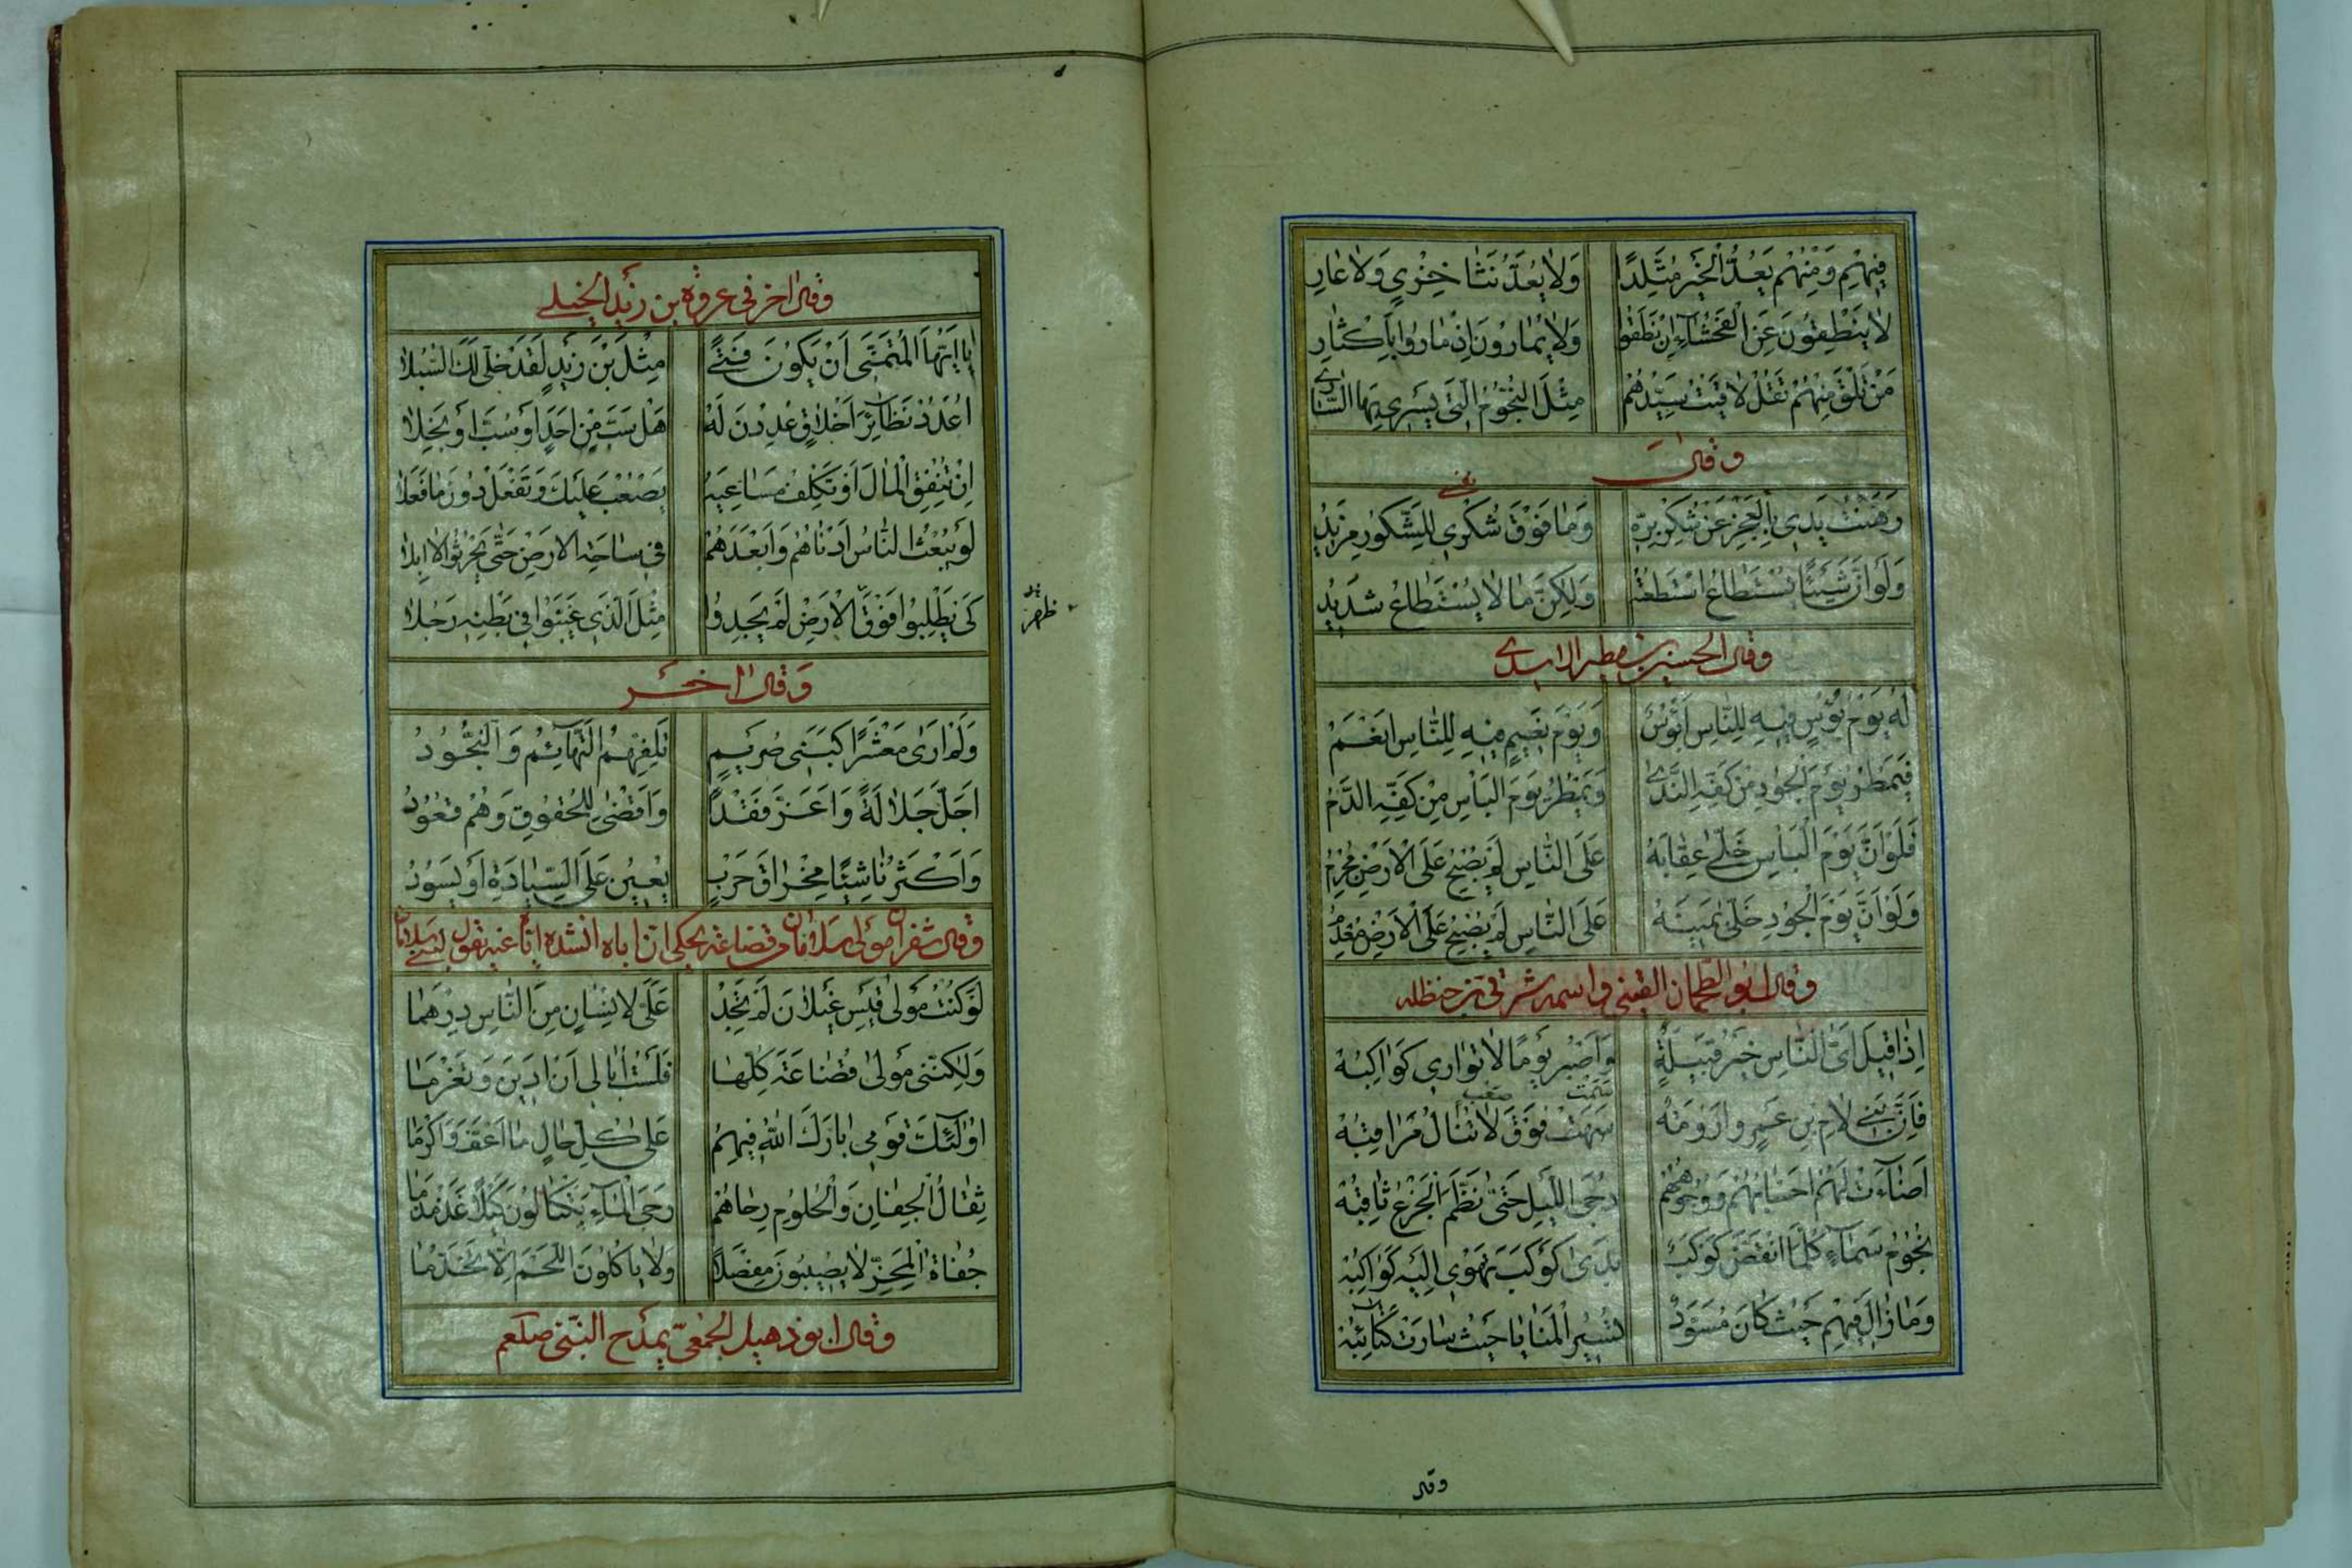 فِيهِمْ وَمِنْهُمْ يُعَدُّ الْخَيْرُ مُتَّلِدًا وَلَا يُعَدُّ نَثَا خِزْيٍ وَلَا عَارِ
لَا يَنْطِقُونَ عَنِ الْفَحْشَاءِ إِنْ نَطَقُوا وَلَا يُمَارُونَ إِذْ مَارُوا بِإِكْثَارِ
مَنْ تَلْقَ مِنْهُمْ تَقُلْ لَاقَيْتُ سَيِّدَهُمْ مِثْلَ النُّجُومِ الَّتِي يَسْرِي بِهَا السَّارِي
وقال
رَهَنْتُ يَدِي بِالْعَجْزِ عَنْ شُكْرِ بِرِّهِ وَمَا فَوْقَ شُكْرِي لِلشَّكُورِ مَزِيدُ
وَلَوْ أَنَّ شَيْئًا يُسْتَطَاعُ اسْتَطَعْتُهُ وَلَكِنَّ مَا لَا يُسْتَطَاعُ شَدِيدُ
وقال الحسين بن مطير الاسدي
لَهُ يَوْمُ بُؤْسٍ فِيهِ لِلنَّاسِ أَبْؤُسٌ وَيَوْمُ نَعِيمٍ فِيهِ لِلنَّاسِ أَنْعُمُ
فَيَمْطُرُ يَوْمَ الْجُودِ مِنْ كَفِّهِ النَّدَى وَيَمْطُرُ يَوْمَ الْبَأْسِ مِنْ كَفِّهِ الدَّمُ
فَلَوْ أَنَّ يَوْمَ الْبَأْسِ خَلَّى عِقَابَهُ عَلَى النَّاسِ لَمْ يُصْبِحْ عَلَى الْأَرْضِ مُجْرِمُ
وَلَوْ أَنَّ يَوْمَ الْجُودِ خَلَّى يَمِينَهُ عَلَى النَّاسِ لَمْ يُصْبِحْ عَلَى الْأَرْضِ مُعْدِمُ
وقال ابو الطمحان القيني واسمه شرقي بن حنظله
إِذَا قِيلَ أَيُّ النَّاسِ خَيْرُ قَبِيلَةٍ وَأَصْبَرُ يَوْمًا لَا تَوَارَى كَوَاكِبُهْ
سَمَتْ صعب
فَإِنَّ بَنِي لَامِ بْنِ عَمْرٍو أَرُومَةٌ فَوْقَ لَا تُنَالُ مَرَاقِبُهْ
أَضَاءَتْ لَهُمْ أَحْسَابُهُمْ وَوُجُوهُهُمْ دُجَى اللَّيْلِ حَتَّى نَظَّمَ الْجَزْعَ ثَاقِبُهْ
نُجُومُ سَمَاءٍ كُلَّمَا انْقَضَّ كَوْكَبٌ بَدَى كَوْكَبٌ تَهْوِي إِلَيْهِ كَوَاكِبُهْ
وَمَا زَالَ فِيهِمْ حَيْثُ كَانَ مُسَوَّدٌ تَسِيرُ الْمَنَايَا حَيْثُ سَارَتْ كَتَائِبُهْ
وقال
وقال اخر في عروة بن زيد الخيل
يَا أَيُّهَا الْمُتَمَنِّي أَنْ يَكُونَ فَتًى مِثْلَ بْنِ زَيْدٍ لَقَدْ خَلَّى لَكَ السُّبُلَا
أُعْدُدْ نَظَائِرَ أَخْلَاقٍ عُدِدْنَ لَهُ هَلْ سَبَّ مِنْ أَحَدٍ أَوْ سُبَّ أَوْ بَخِلَا
إِنْ تُنْفِقِ الْمَالَ أَوْ تَكْلَفْ مَسَاعِيَهُ يَصْعُبْ عَلَيْكَ وَتَفْعَلْ دُونَ مَا فَعَلَا
لَوْ يُبْعَثُ النَّاسُ أَدْنَاهُمْ وَأَبْعَدُهُمْ فِي سَاحَةِ الْأَرْضِ حَتَّى يَحْرُثُوا الْإِبِلَا
كَيْ يَطْلُبُوا فَوْقَ الْأَرْضِ لَمْ يَجِدُوا مِثْلَ الَّذِي غَيَّبُوا فِي بَطْنِهِ رَجُلَا
ظهر
وَقَالَ آخَر
وَلَمْ أَرَى مَعْشَرًا كَبَنِي صُرَيْمٍ تَلُفُّهُمُ التَّهَائِمُ وَالنُّجُودُ
أَجَلَّ جَلَالَةً وَأَعَزَّ فَقْدًا وَأَقْضَى لِلْحُقُوقِ وَهُمْ قُعُودُ
وَأَكْثَرَ نَاشِئًا مِخْرَاقَ حَرْبٍ يُعِينُ عَلَى السِّيَادَةِ أَوْ يَسُودُ
وقال شقران مولى سلامان من قضاعة يحكى ان اباه انشده
لَوْ كُنْتُ مَوْلَى قَيْسِ عَيْلَانَ لَمْ تَجِدْ عَلَيَّ لِإِنْسَانٍ مِنَ النَّاسِ دِرْهَمَا
وَلَكِنَّنِي مَوْلَى قُضَاعَةَ كُلِّهَا فَلَسْتُ أُبَالِي أَنْ أَدِينَ وَتَغْرَمَا
أُولَئِكَ قَوْمِي بَارَكَ اللَّهُ فِيهِمُ عَلَى كُلِّ حَالٍ مَا أَعَفَّ وَأَكْرَمَا
ثِقَالُ الْجِفَانِ وَالْحُلُومِ رِحَاهُمُ رَحَى الْمَاءِ يَكْتَالُونَ كَيْلًا غَذَمْذَمَا
جُفَاةُ الْمَحَزِّ لَا يُصِيبُونَ مَفْصِلًا وَلَا يَأْكُلُونَ اللَّحْمَ إِلَّا تَخَذُّمَا
وقال ابو دهبل الجمحي يمدح النبي صلعم